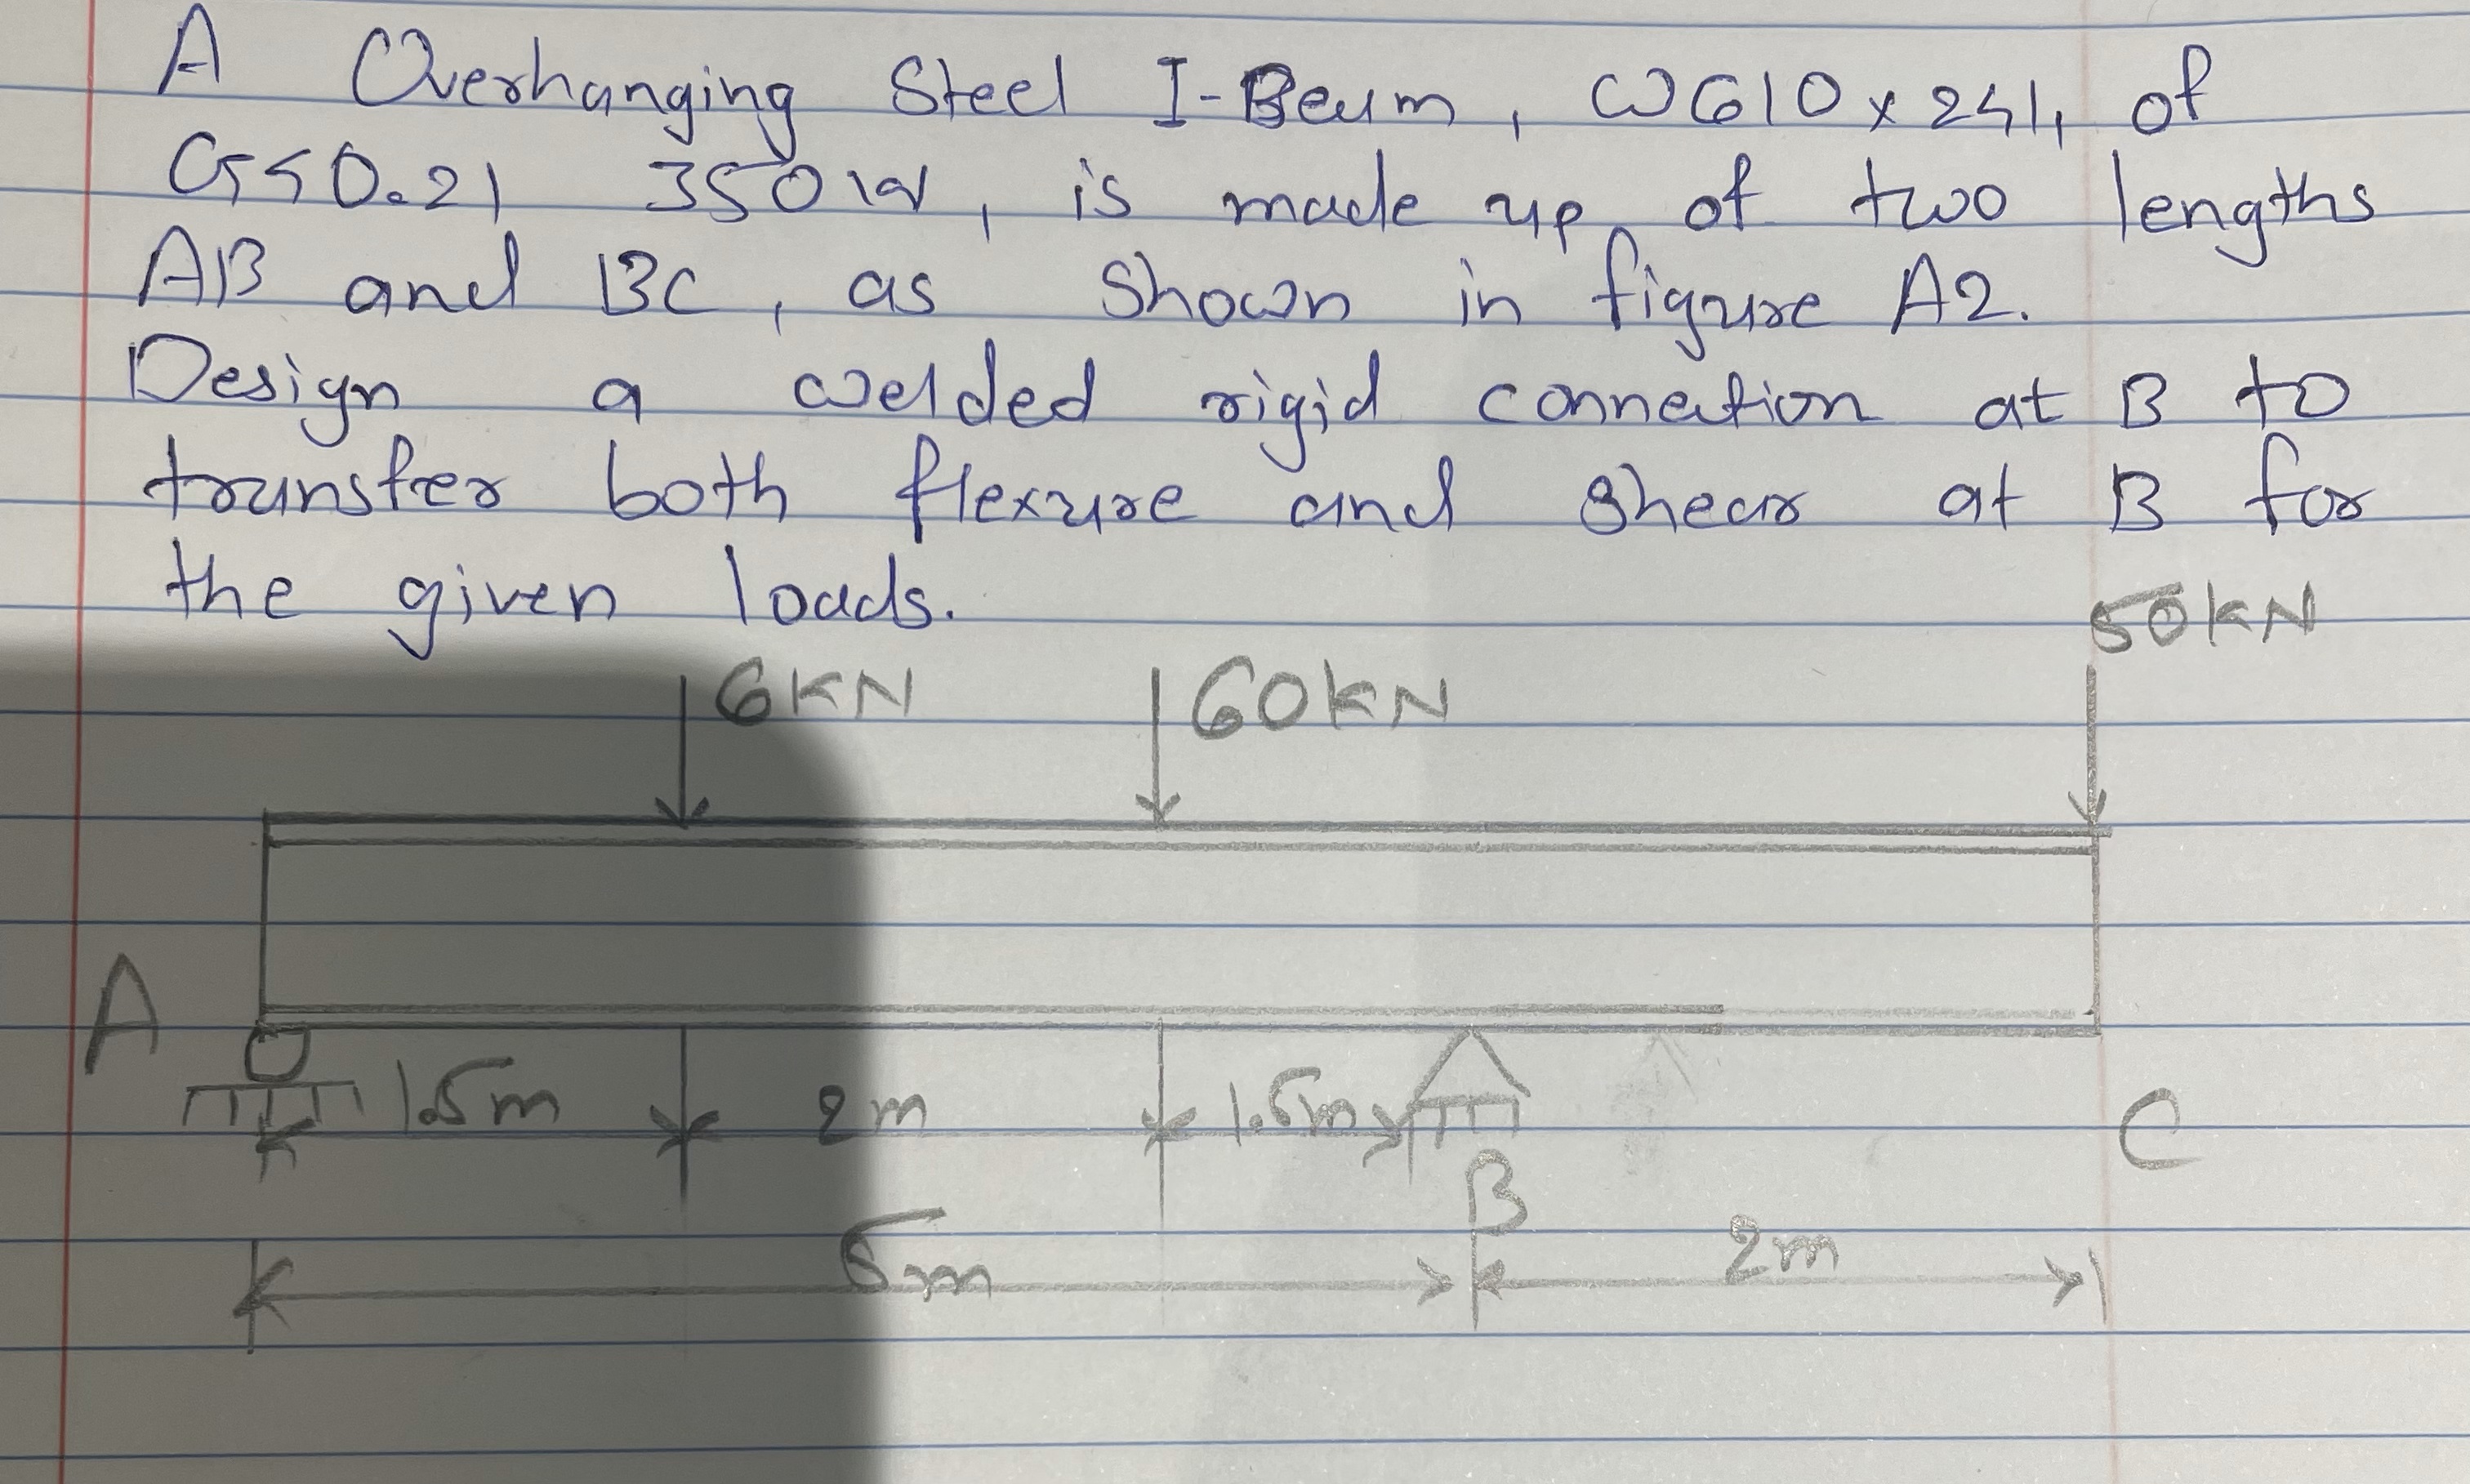 A Overhanging Steel I-Beam, W610x241, of
G40.21 350W, is made up of two lengths
AB and BC, as shown in figure A2.
Design a welded rigid connection at B to
transfer both flexure and shear at B for
the given loads.
50KN
6KN 60KN
A
1.5m 2m 1.5m
C
B
5m 2m